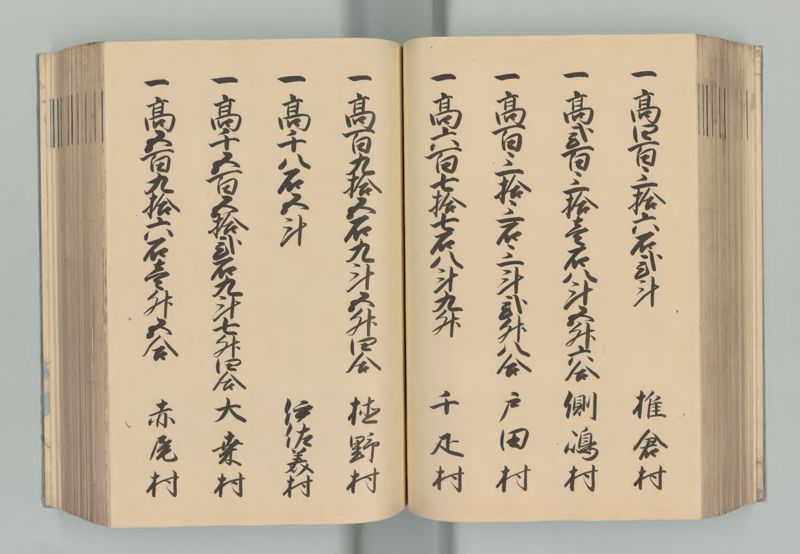 一高四百三拾六石弐斗 椎倉村
一高弐百三拾壱石八斗五升六合 側嶋村
一高百三拾三石三斗弐升八合 戸田村
一高六百七拾七石八斗九升 千疋村
一高百九拾五石九斗五升四合 植野村
一高千八石五斗 伊佐美村
一高千五百五拾弐石九斗七升四合 大桑村
一高五百九拾六石壱升五合 赤尾村